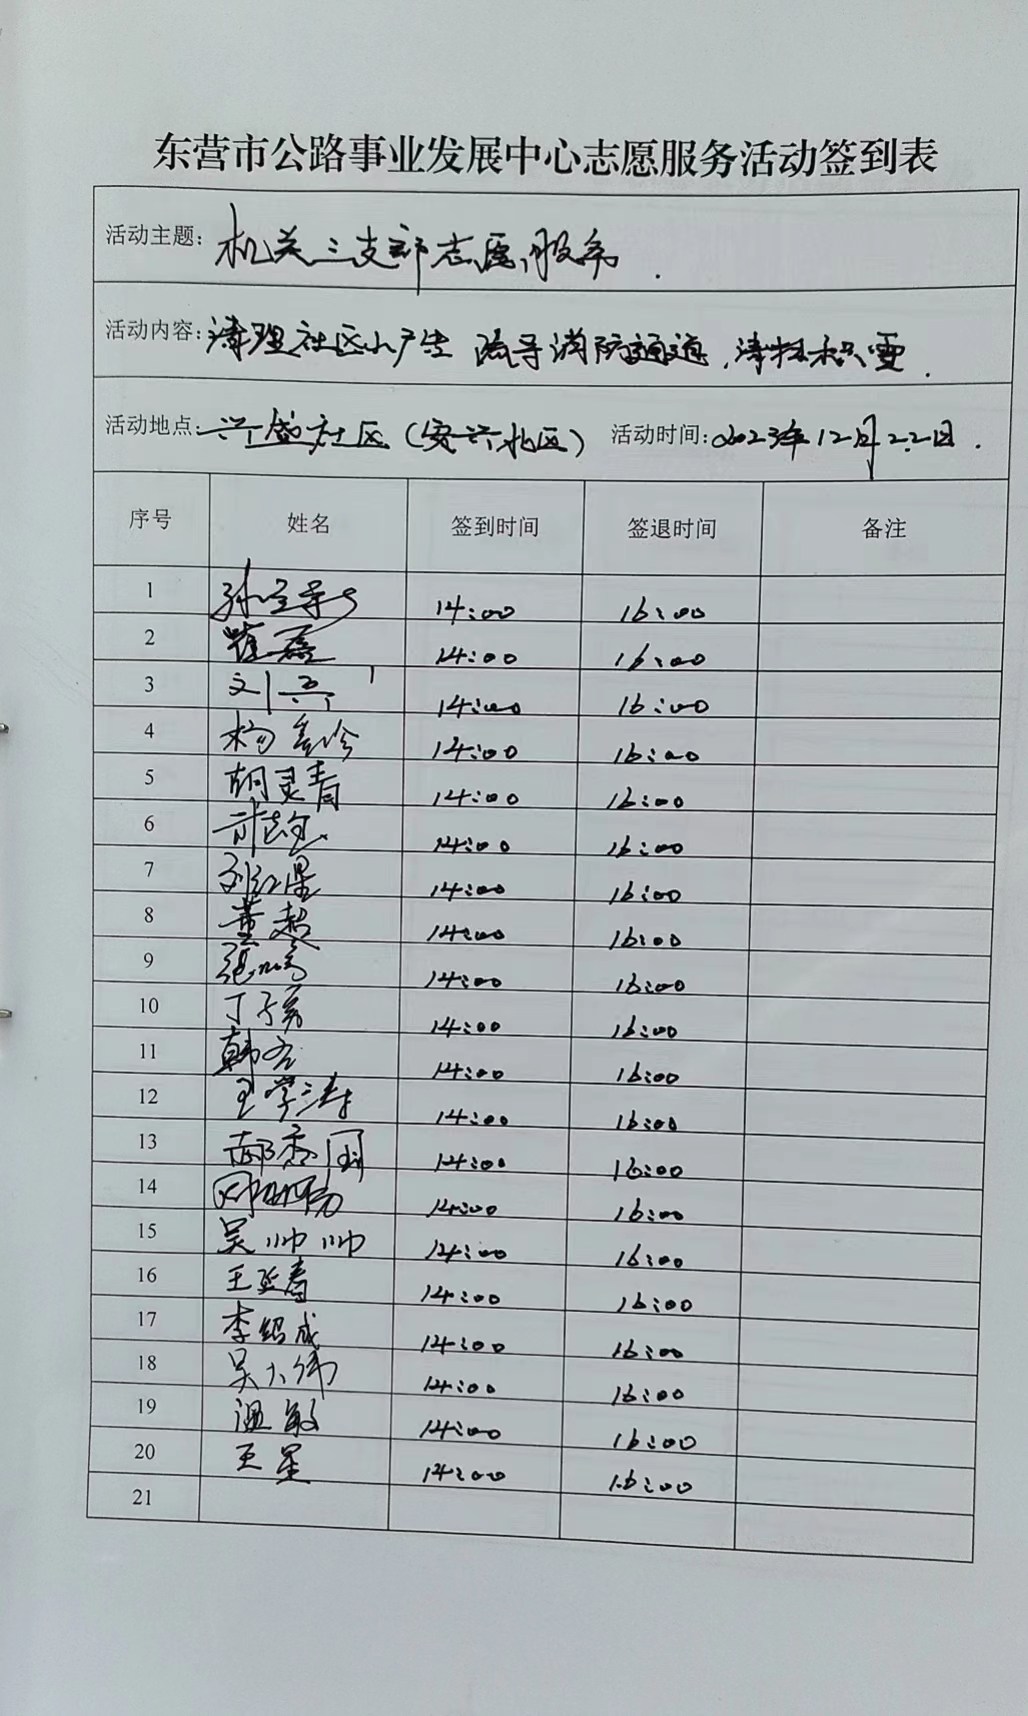 东营市公路事业发展中心志愿服务活动签到表
活动主题: 机关三支部志愿服务.
活动内容: 清理社区小广告 疏导消防通道,清扫积雪.
活动地点: 兴盛社区(安兴北区) 活动时间: 2023年12月22日.
序号 姓名 签到时间 签退时间 备注
1 14:00 16:00
2 崔磊 14:00 16:00
3 刘 14:00 16:00
4 杨 14:00 16:00
5 胡灵青 14:00 16:00
6 14:00 16:00
7 刘红星 14:00 16:00
8 董超 14:00 16:00
9 张 14:00 16:00
10 丁 14:00 16:00
11 韩 14:00 16:00
12 王学涛 14:00 16:00
13 郝秀国 14:00 16:00
14 14:00 16:00
15 吴帅帅 14:00 16:00
16 王延春 14:00 16:00
17 李绍成 14:00 16:00
18 吴大伟 14:00 16:00
19 温敏 14:00 16:00
20 王星 14:00 16:00
21